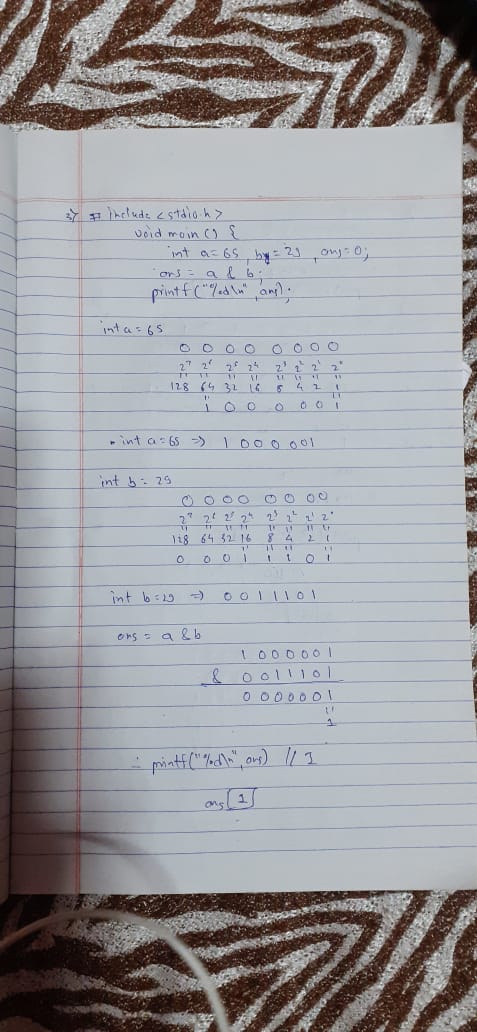 3) # include <stdio.h>
void main() {
int a= 65, b = 29, ans= 0;
ans = a & b;
printf("%d\n", ans);
int a = 65
0 0 0 0 0 0 0 0
2⁷ 2⁶ 2⁵ 2⁴ 2³ 2² 2¹ 2⁰
" " " " " " " "
128 64 32 16 8 4 2 1
" "
1 0 0 0 0 0 1
* int a = 65 => 1 0 0 0 0 0 1
int b = 29
0 0 0 0 0 0 0 0
2⁷ 2⁶ 2⁵ 2⁴ 2³ 2² 2¹ 2⁰
" " " " " " " "
128 64 32 16 8 4 2 1
" " " "
0 0 0 1 1 1 0 1
int b = 29 => 0 0 1 1 1 0 1
ans = a & b
1 0 0 0 0 0 1
& 0 0 1 1 1 0 1
0 0 0 0 0 0 1
"
1
∴ printf("%d\n", ans) // 1
ans [1]